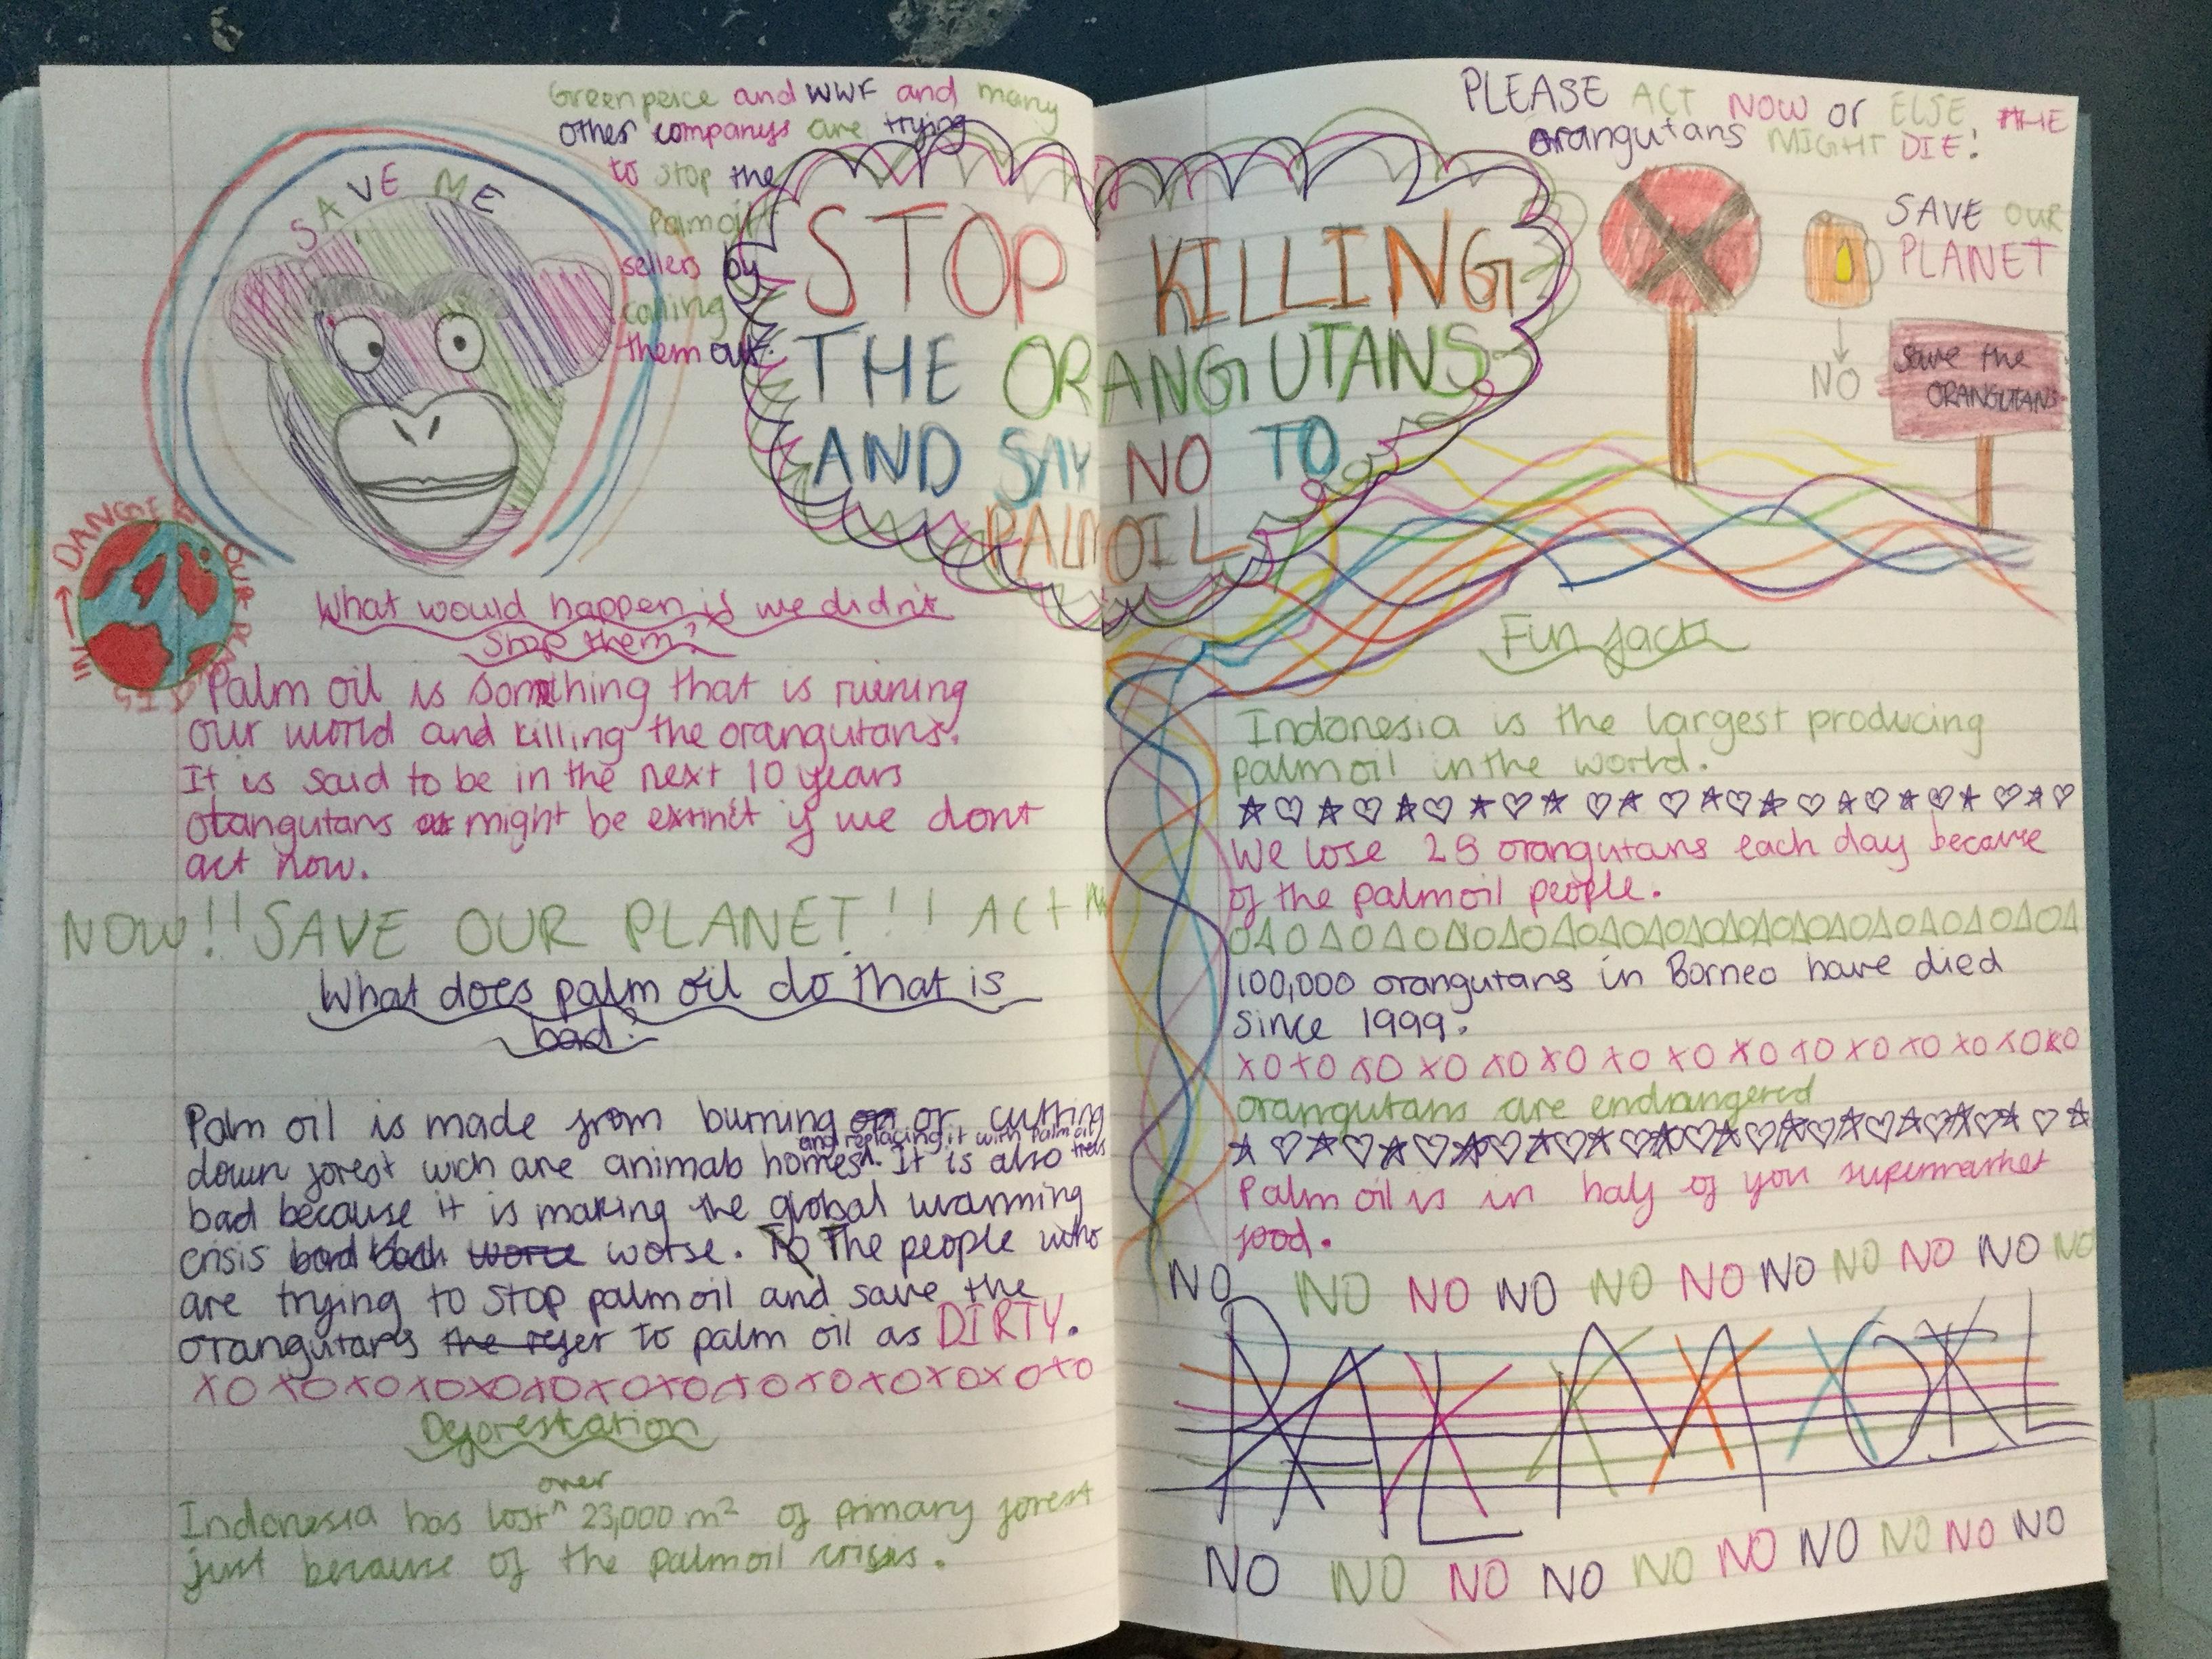 Greenpeice and WWF and many
other companys are trying
to stop the
palmoil
sellers by
calling
them out.
SAVE ME
STOP KILLING
THE ORANGUTANS
AND SAY NO TO
PALMOIL
PLEASE ACT NOW or ELSE THE
orangutans MIGHT DIE!
SAVE OUR
PLANET
NO
Save the
ORANGUTANS
OUR PLANET IS
IN → DANGER
What would happen if we didn't
stop them?
Palm oil is somthing that is ruining
our world and killing the orangutans.
It is said to be in the next 10 years
orangutans might be extinct if we dont
act now.
NOW!! SAVE OUR PLANET!! ACT
What does palm oil do that is
bad?
Palm oil is made from burning or cutting
down forest wich are animals homes and replacing it with palm oil trees. It is also
bad because it is making the global warming
crisis worse. The people who
are trying to stop palmoil and save the
orangutans refer to palm oil as DIRTY.
XO XO XO XO XO XO XO XO XO XO XO XO XO XO
Deforestation
Indonesia has lost over 23,000 m² of primary forest
just because of the palmoil crisis.
Fun facts
Indonesia is the largest producing
palmoil in the world.
We lose 25 orangutans each day because
of the palmoil people.
100,000 orangutans in Borneo have died
since 1999.
XO XO XO XO XO XO XO XO XO XO XO XO XO XO XO
orangutans are endangered
Palm oil is in half of you supermarket
food.
NO NO NO NO NO NO NO NO NO NO NO
PALM OIL
NO NO NO NO NO NO NO NO NO NO